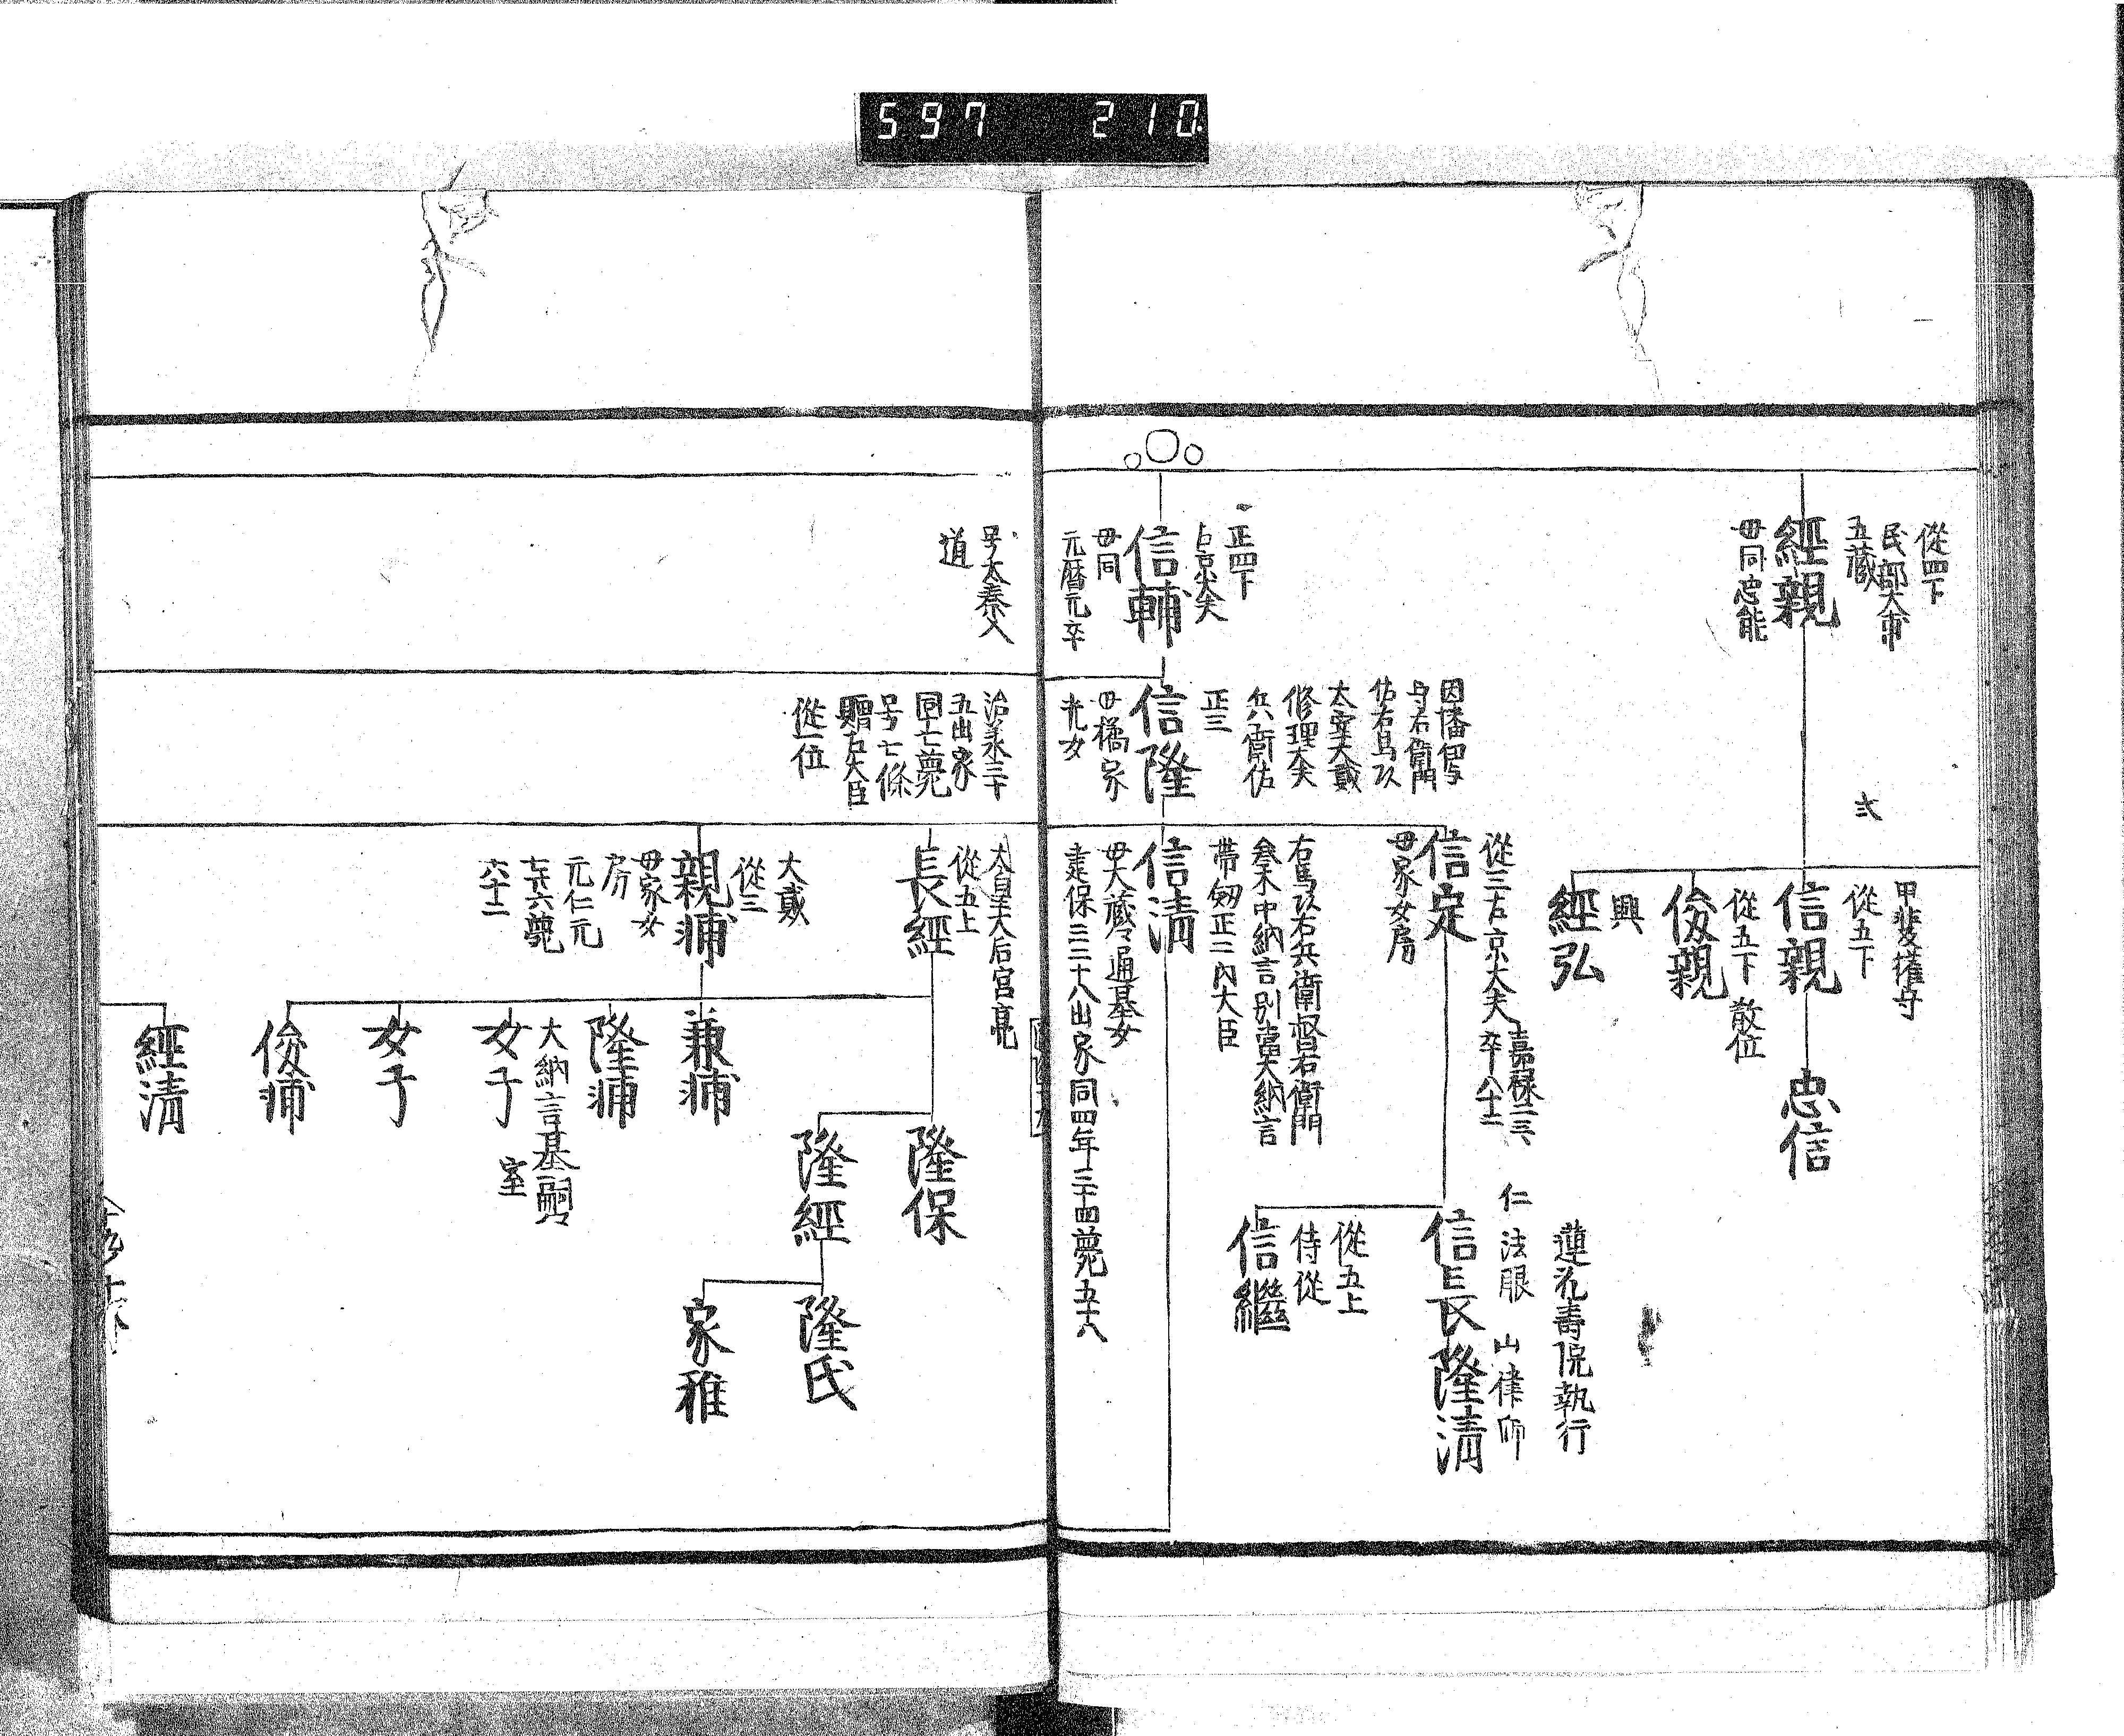 597 210
從四下
民部大甫
五藏
經親
母同忠能
弍
甲斐權守
從五下
信親
忠信
從五下 散位
俊親
興
經弘
正四下
信輔
母同
元暦元卒
因幡伊与
与右衛門
佐右馬
太宰大貳
修理大夫
兵衛佐
正三
信隆
母橘家
光女
從三右京大夫
嘉祿三三
卒八十二
信定
母家女房
蓮花壽院執行
仁法眼 山律師
信長
隆清
從五上
侍從
信繼
右馬 右兵衛督右衛門
參木中納言別當大納言
帶劔正二内大臣
信清
母大藏 通基女
建保三二十八出家同四年三十四薨五十八
号太秦入
道
治承三十
五出家
同十七薨
号七條
贈左大臣
從一位
太皇大后宮亮
從五上
長經
隆保
隆經
隆氏
家雅
大貳
從三
親輔
母家女
房
元仁元
七廿六薨
六十二
兼輔
隆輔
大納言基嗣
室
女子
女子
俊輔
經清